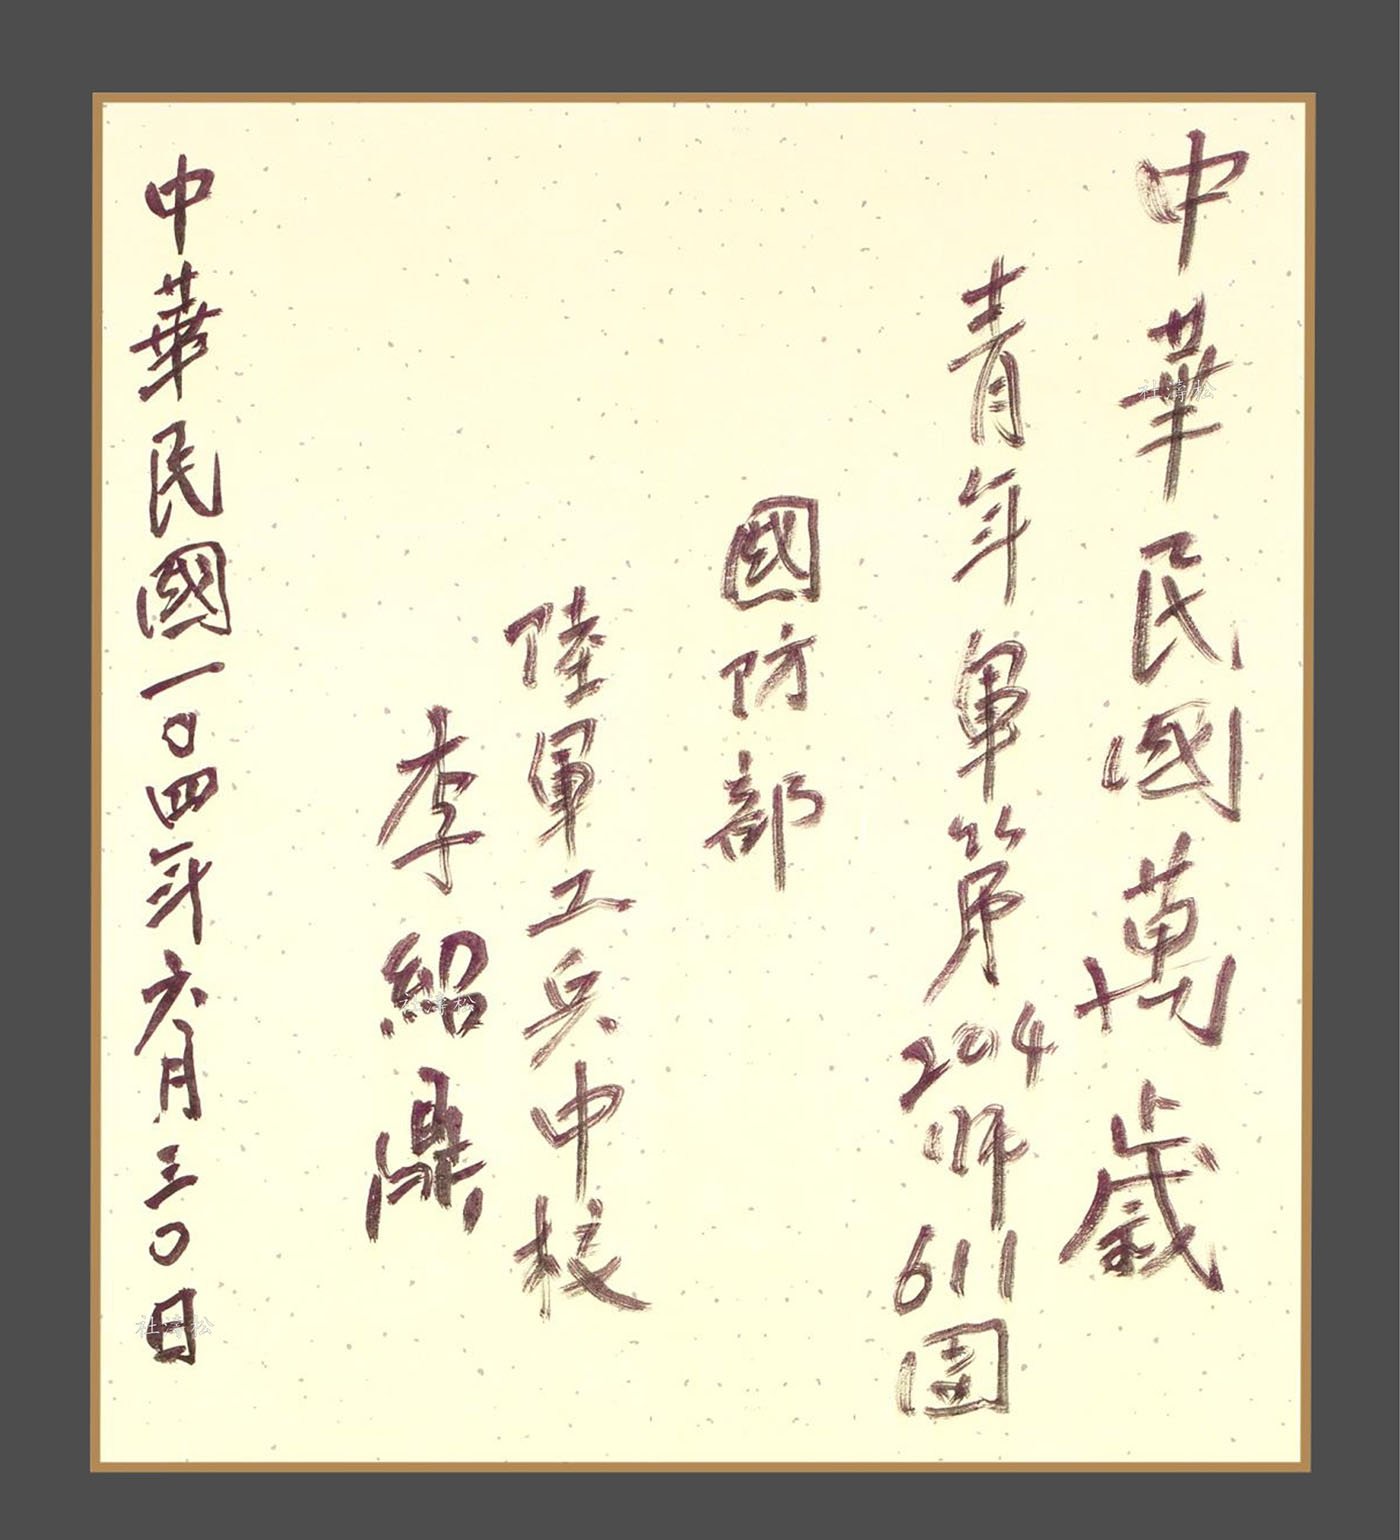 中華民國萬歲
青年軍第204師611團
國防部
陸軍工兵中校
李紹鼎
中華民國一〇四年六月三〇日
杜濤松
杜濤松
杜濤松